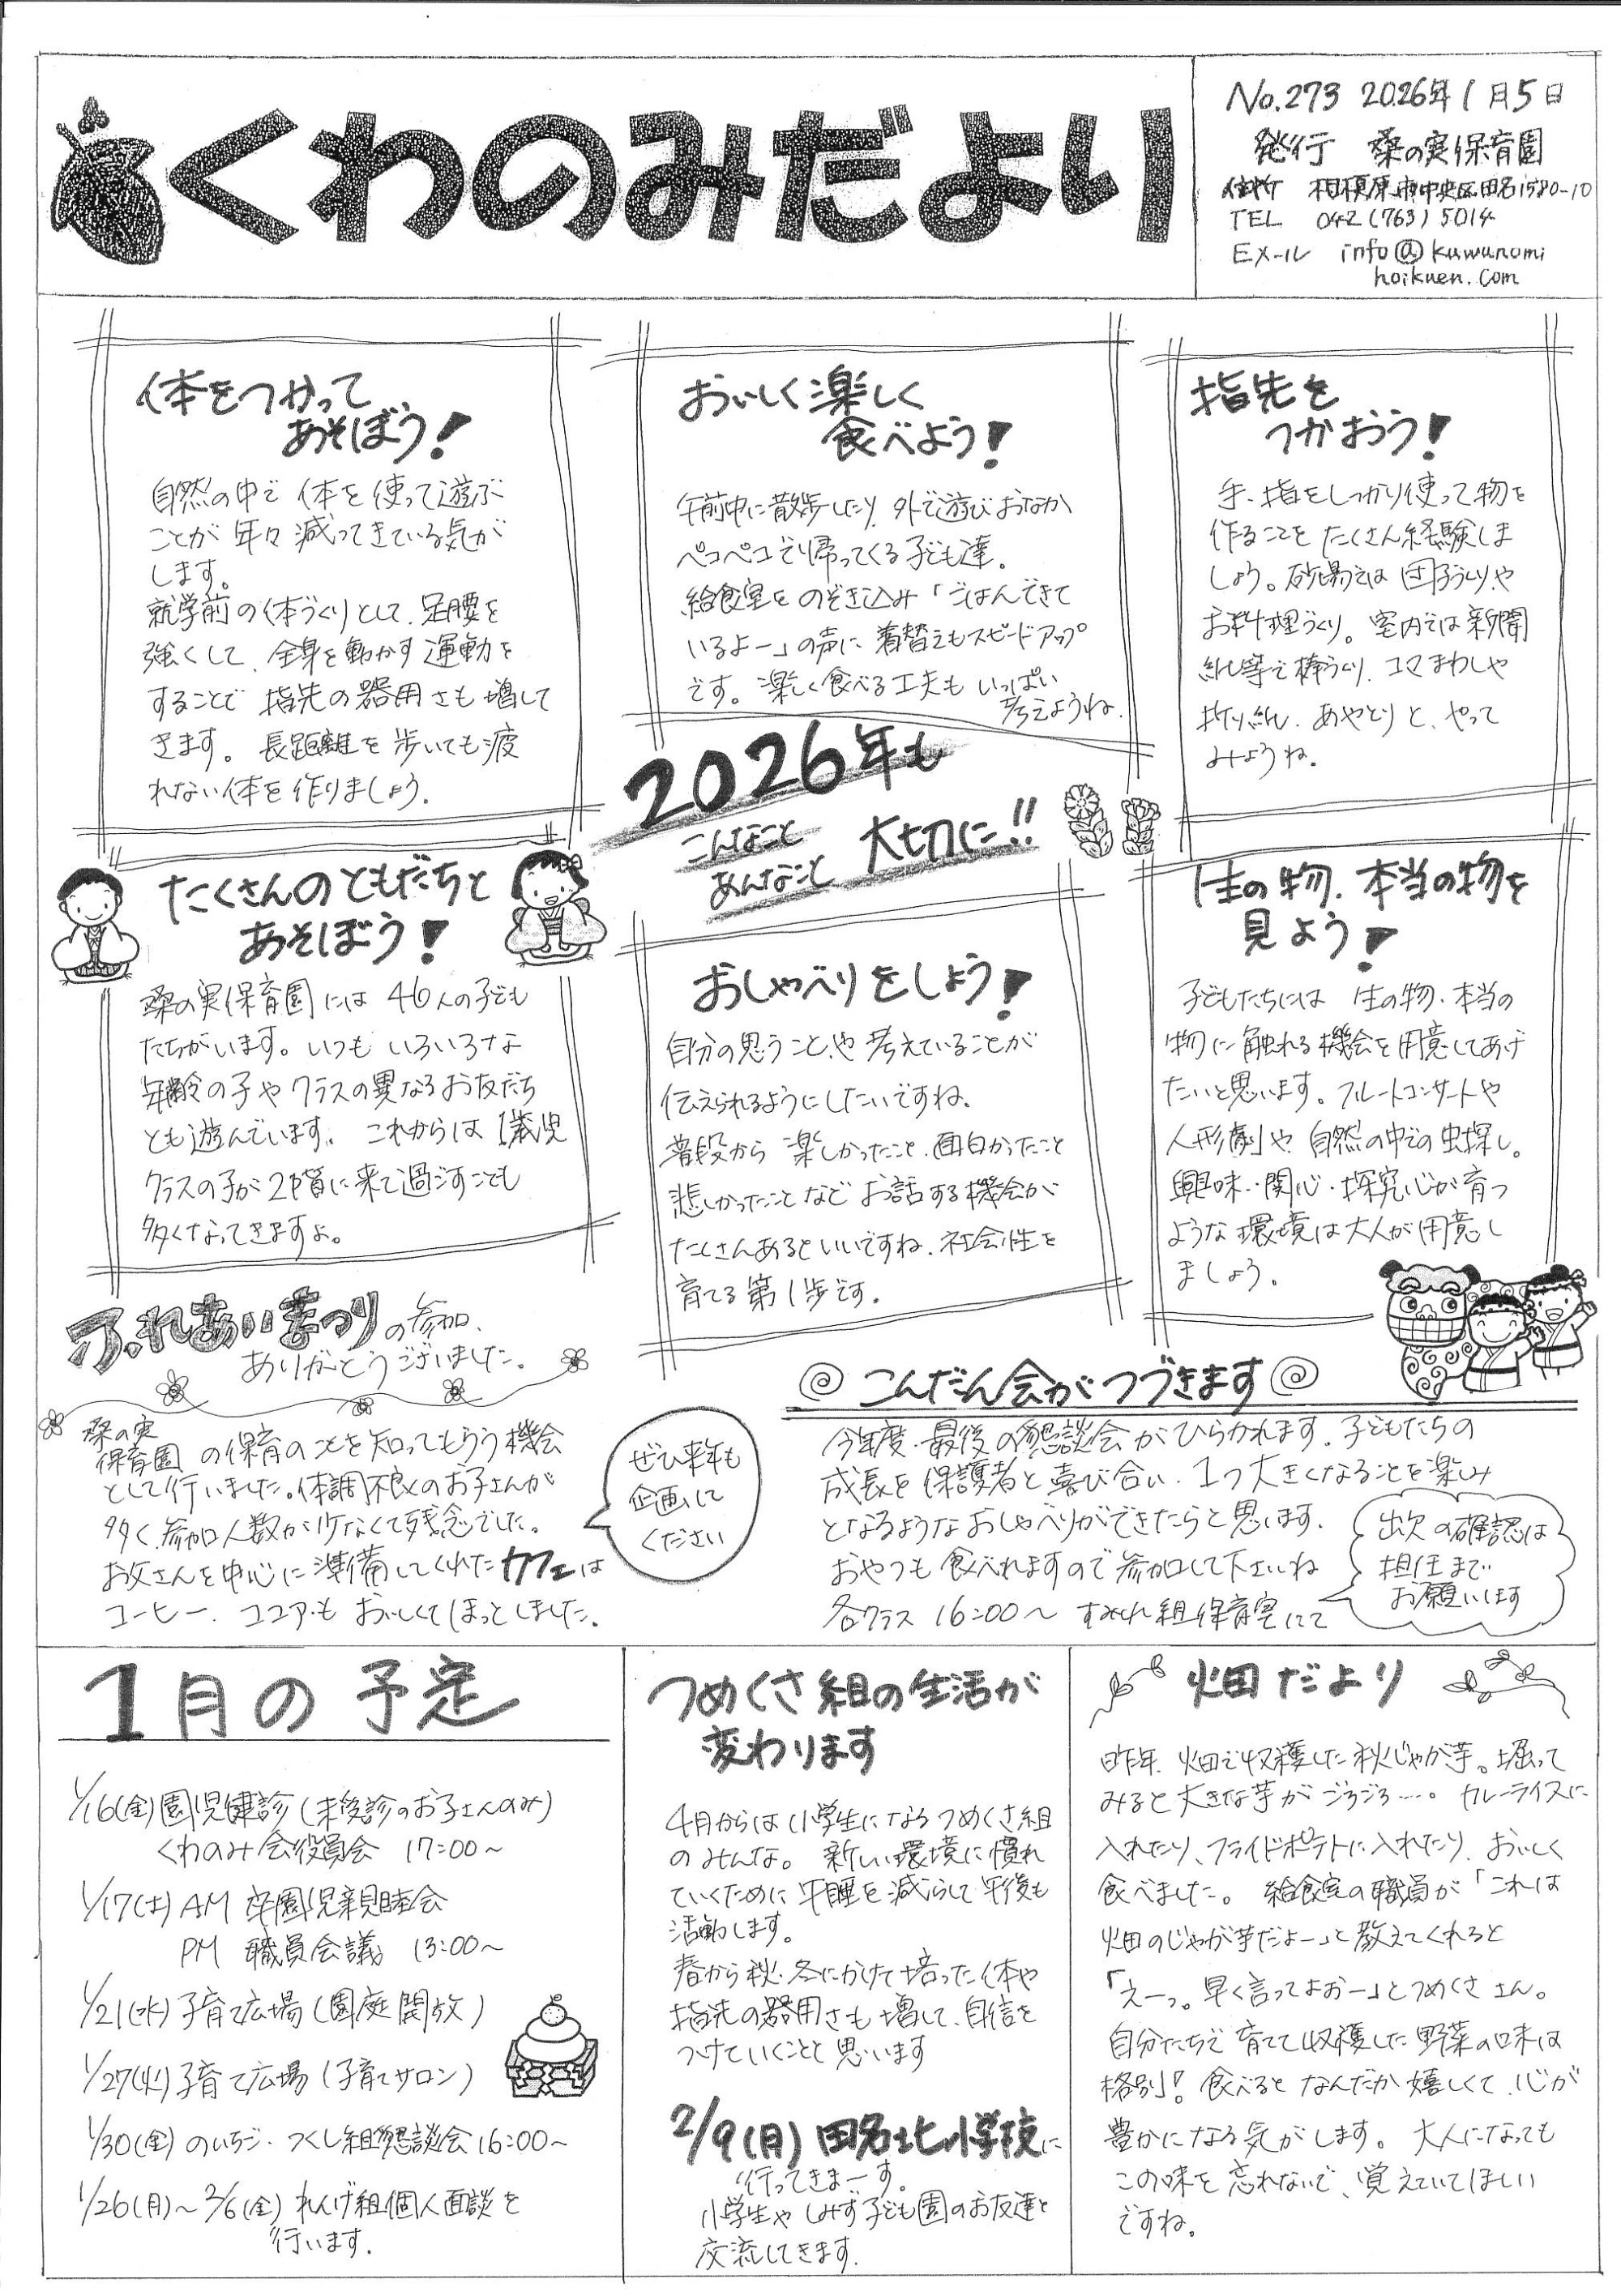 くわのみだより
No.273 2026年1月5日
発行 桑の実保育園
住所 相模原市中央区田名1580-10
TEL 042(763)5014
Eメール info@kuwanomi
hoikuen.com
体をつかって
あそぼう!
自然の中で体を使って遊ぶ
ことが年々減ってきている気が
します。
就学前の体づくりとして、足腰を
強くして、全身を動かす運動を
することで指先の器用さも増して
きます。長距離を歩いても疲
れない体を作りましょう。
おいしく楽しく
食べよう!
午前中に散歩したり、外で遊びおなか
ペコペコで帰ってくる子ども達。
給食室をのぞき込み「ごはんできて
いるよー」の声に着替えもスピードアップ
です。楽しく食べる工夫もいっぱい
考えようね。
指先を
つかおう!
手、指をしっかり使って物を
作ることをたくさん経験しま
しょう。砂場では団子づくりや
お料理づくり。室内では新聞
紙等で棒づくり、コマまわしや
折り紙、あやとりと、やって
みようね。
2026年も
こんなこと
あんなこと 大切に!!
たくさんのともだちと
あそぼう!
桑の実保育園には46人の子ども
たちがいます。いつもいろいろな
年齢の子やクラスの異なるお友だち
とも遊んでいます。これからは1歳児
クラスの子が2階に来て過ごすことも
多くなってきますよ。
おしゃべりをしよう!
自分の思うことや考えていることが
伝えられるようにしたいですね。
普段から楽しかったこと、面白かったこと
悲しかったことなどお話する機会が
たくさんあるといいですね。社会性を
育てる第1歩です。
生の物、本当の物を
見よう!
子どもたちには生の物・本当の
物に触れる機会を用意してあげ
たいと思います。フルートコンサートや
人形劇や自然の中での虫探し。
興味・関心・探究心が育つ
ような環境は大人が用意し
ましょう。
ふれあいまつりの参加、
ありがとうございました。
桑の実
保育園の保育のことを知ってもらう機会
として行いました。体調不良のお子さんが
多く、参加人数が少なくて残念でした。
お父さんを中心に準備してくれたカフェは
コーヒー、ココアもおいしくてほっとしました。
ぜひ来年も
企画して
ください
こんだん会がつづきます
今年度最後の懇談会がひらかれます。子どもたちの
成長を保護者と喜び合い、1つ大きくなることを楽しみ
となるようなおしゃべりができたらと思います。
おやつも食べれますので参加して下さいね
各クラス 16:00〜 すみれ組保育室にて
出欠の確認は
担任まで
お願いします
1月の予定
1/16(金)園児健診(未受診のお子さんのみ)
くわのみ会役員会 17:00〜
1/17(土)AM 卒園児親睦会
PM 職員会議 13:00〜
1/21(水)子育て広場(園庭開放)
1/27(火)子育て広場(子育てサロン)
1/30(金)のいちご・つくし組懇談会16:00〜
1/26(月)〜2/6(金)れんげ組個人面談を
行います。
つめくさ組の生活が
変わります
4月からは小学生になるつめくさ組
のみんな。新しい環境に慣れ
ていくために午睡を減らして午後も
活動します。
春から秋・冬にかけて培った体や
指先の器用さも増して、自信を
つけていくことと思います
2/9(月)田名北小学校に
行ってきまーす。
小学生やしみず子ども園のお友達と
交流してきます。
畑だより
昨年、畑で収穫した秋じゃが芋。掘って
みると大きな芋がごろごろ…。カレーライスに
入れたり、フライドポテトに入れたり、おいしく
食べました。給食室の職員が「これは
畑のじゃが芋だよー」と教えてくれると
「えーっ。早く言ってよおー」とつめくささん。
自分たちで育てて収穫した野菜の味は
格別!食べるとなんだか嬉しくて、心が
豊かになる気がします。大人になっても
この味を忘れないで、覚えていてほしい
ですね。